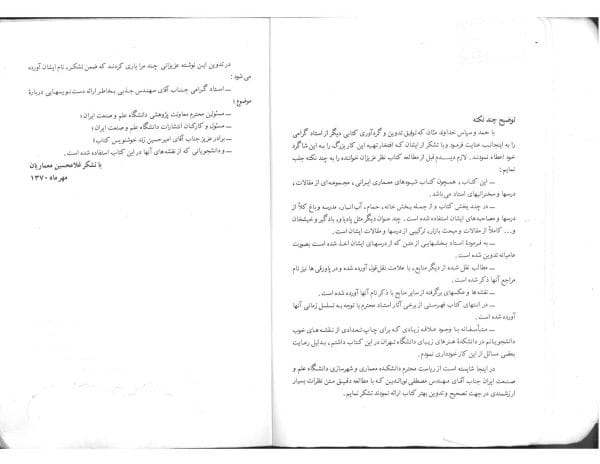 توضیح چند نکته
با حمد و سپاس خداوند منّان که توفیق تدوین و گردآوری کتابی دیگر از استاد گرامی
را به اینجانب عنایت فرمود و با تشکر از ایشان که افتخار تهیه این کار بزرگ را به این شاگرد
خود اعطاء نمودند. لازم دیدم قبل از مطالعه کتاب نظر عزیزان خواننده را به چند نکته جلب
نمایم:
ــ این کتاب، همچون کتاب شیوه‌های معماری ایرانی، مجموعه‌ای از مقالات،
درسها و سخنرانیهای استاد می‌باشد.
ــ در چند بخش کتاب و از جمله بخش خانه، حمام، آب‌انبار، مدرسه و باغ کلاً از
درسها و مصاحبه‌های ایشان استفاده شده است. چند عنوان دیگر مثل پادیاو، بادگیر و خیشخان
و... کاملاً از مقالات و مبحث بازار، ترکیبی از درسها و مقالات ایشان است.
ــ به فرمودهٔ استاد بخشهایی از متن که از درسهای ایشان اخذ شده است بصورت
عامیانه تدوین شده است.
ــ مطالب نقل شده از دیگر منابع، با علامت نقل قول آورده شده و در پاورقی‌ها نیز نام
مراجع آنها ذکر شده است.
ــ نقشه‌ها و عکسهای برگرفته از سایر منابع با ذکر نام آنها آورده شده است.
ــ در انتهای کتاب فهرستی از برخی آثار استاد محترم با توجه به تسلسل زمانی آنها
آورده شده است.
ــ متأسفانه با وجود علاقه زیادی که برای چاپ تعدادی از نقشه‌های خوب
دانشجویانم در دانشکدهٔ هنرهای زیبای دانشگاه تهران در این کتاب داشتم، بدلیل رعایت
بعضی مسائل از این کار خودداری نمودم.
در اینجا شایسته است از ریاست محترم دانشکده معماری و شهرسازی دانشگاه علم و
صنعت ایران جناب آقای مهندس مصطفی نورالدین که با مطالعه دقیق متن نظرات بسیار
ارزشمندی در جهت تصحیح و تدوین بهتر کتاب ارائه نمودند تشکر نمایم.
در تدوین این نوشته عزیزانی چند مرا یاری کردند که ضمن تشکر، نام ایشان آورده
می شود:
ــ استاد گرامی جناب آقای مهندس جذبی بخاطر ارائه دست نویسهایی دربارهٔ
موضوع؛
ــ مسئولین محترم معاونت پژوهشی دانشگاه علم و صنعت ایران؛
ــ مسئول و کارکنان انتشارات دانشگاه علم و صنعت ایران؛
ــ برادر عزیز جناب آقای امیرحسین زند خوشنویس کتاب؛
ــ و دانشجویانی که از نقشه‌های آنها در این کتاب استفاده شده است.
با تشکر غلامحسین معماریان
مهرماه ۱۳۷۰